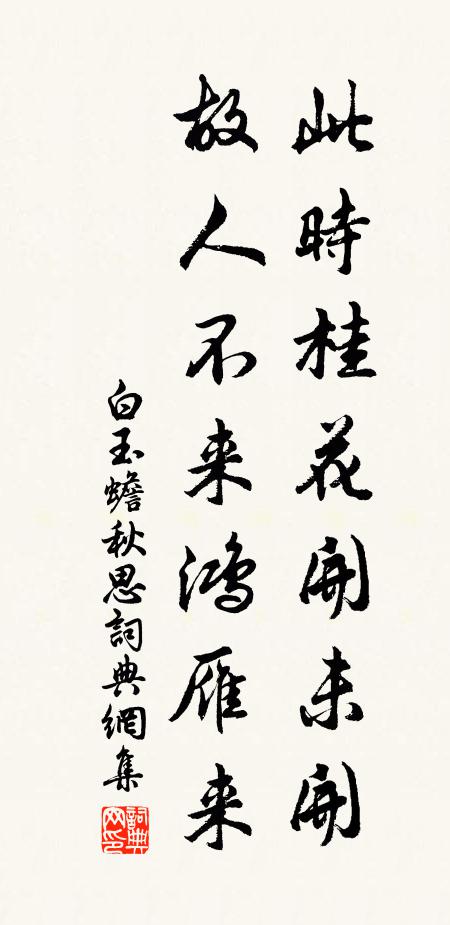 此時桂花開未開
故人不来鴻雁来
白玉蟾秋思詞典網集
詞典网印